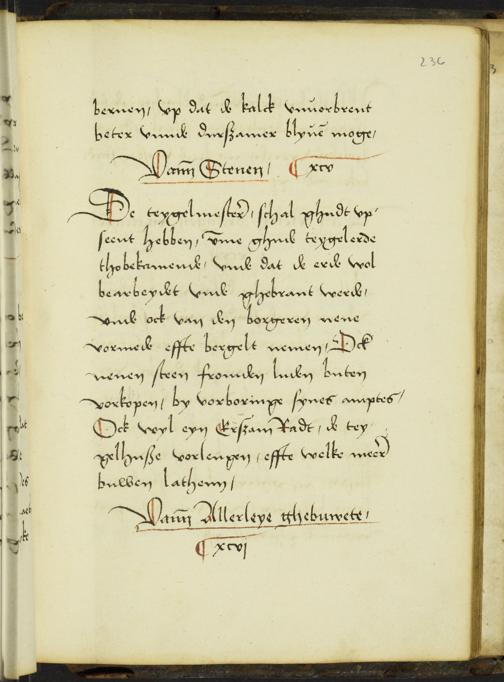 236
bernen, vp dat de kalck vnuorbrent
beter vnnde durßamer blyuē moge,
Vann Stenen, xcv
De teygelmester, schal ghudt vp
seent hebben, vme ghude teygelerde
thobekamende, vnd dat de erde wol
bearbeydet vnd ghebrant werde,
vnde ock van den borgeren nene
vormede effte bergelt nemen, Ock
nenen steen fromden luden buten
vorkopen, by vorboringe synes amptes,
Ock wyl eyn Erßam Radt, de tey
gelhuße vorlengen, effte welke meer
buwen lathenn,
Vann Allerleye ghebuwete,
xcvj